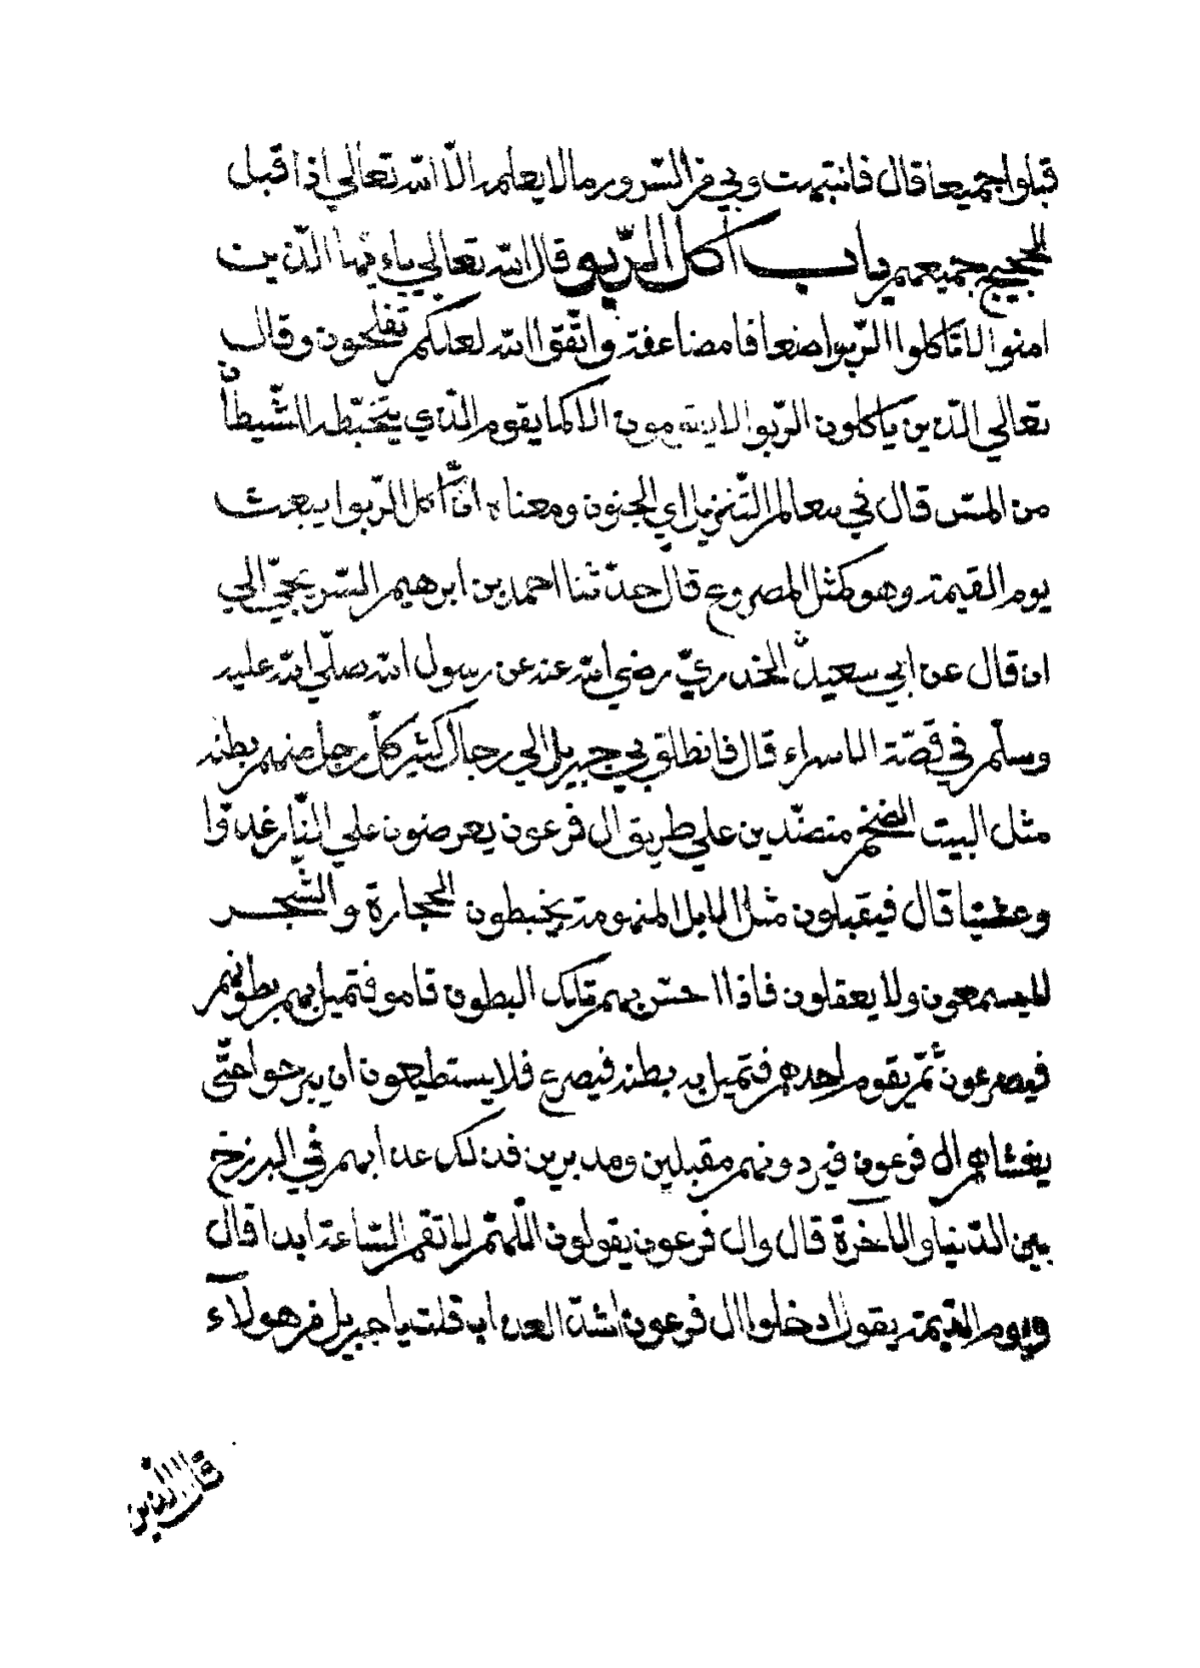 قبلوا جميعا قال فانتبهت وبي من السّرور ما لا يعلمه الّا الله تعالي اذا قبل
الحجيج جميعهم باب اكل الرّبو قال الله تعالي ياءيّها الّذين
امنوا لا تاكلوا الرّبوا ضعافا مضاعفة واتّقوا الله لعلكم تفلحون وقال
تعالي الّذين ياكلون الرّبوا لا يقومون الا كما يقوم الّذي يتخبّطه الشّيطان
من المسّ قال في معالم التّنزيل اي الجنون ومعناه انّ آكل الرّبوا يبعث
يوم القيمة وهو كمثل المصروع قال حدّثنا احمد بن ابرهيم السّريحيّ الي
ان قال عن ابي سعيد الخدريّ رضي الله عنه عن رسول الله صلّي الله عليه
وسلّم في قصّة الاسراء قال فانطلق بي جبريل الي رجال كثير كلّ رجل منهم بطنه
مثل البيت الضخم متصدّين علي طريق ال فرعون يعرضون علي النّار غدوّا
وعشيّا قال فيقبلون مثل الابل المنهومة يخبطون الحجارة والشّجر
لا يسمعون ولا يعقلون فاذا احسّ بهم تلك البطون قاموا فتميل بهم بطونهم
فيصرعون ثمّ يقوم احدهم فتميل به بطنه فيصرع فلا يستطيعون ان يبرحوا حتّي
يغشاهم ال فرعون فيردونهم مقبلين ومدبرين فذلك عذابهم في البرزخ
بين الدّنيا والآخرة قال وال فرعون يقولون اللّهمّ لا تقم السّاعة ابدا قال
ويوم القيمة يقول ادخلوا ال فرعون اشدّ العذاب قلت يا جبريل من هولآء
قال الّذين